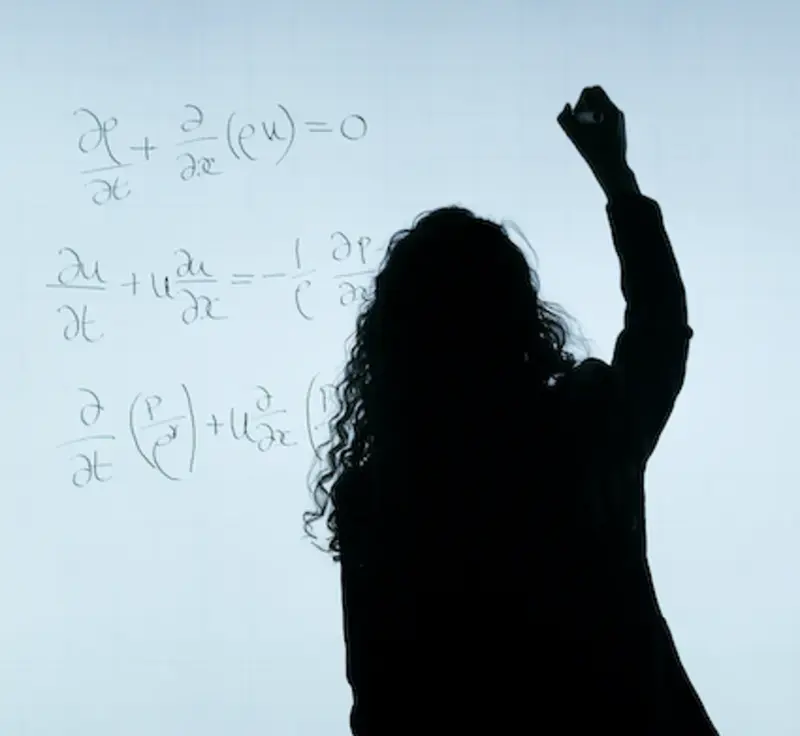 ∂ρ/∂t + ∂/∂x (ρu) = 0
∂u/∂t + u ∂u/∂x = - 1/ρ ∂P/∂x
∂/∂t (P/ρ^γ) + u ∂/∂x (P